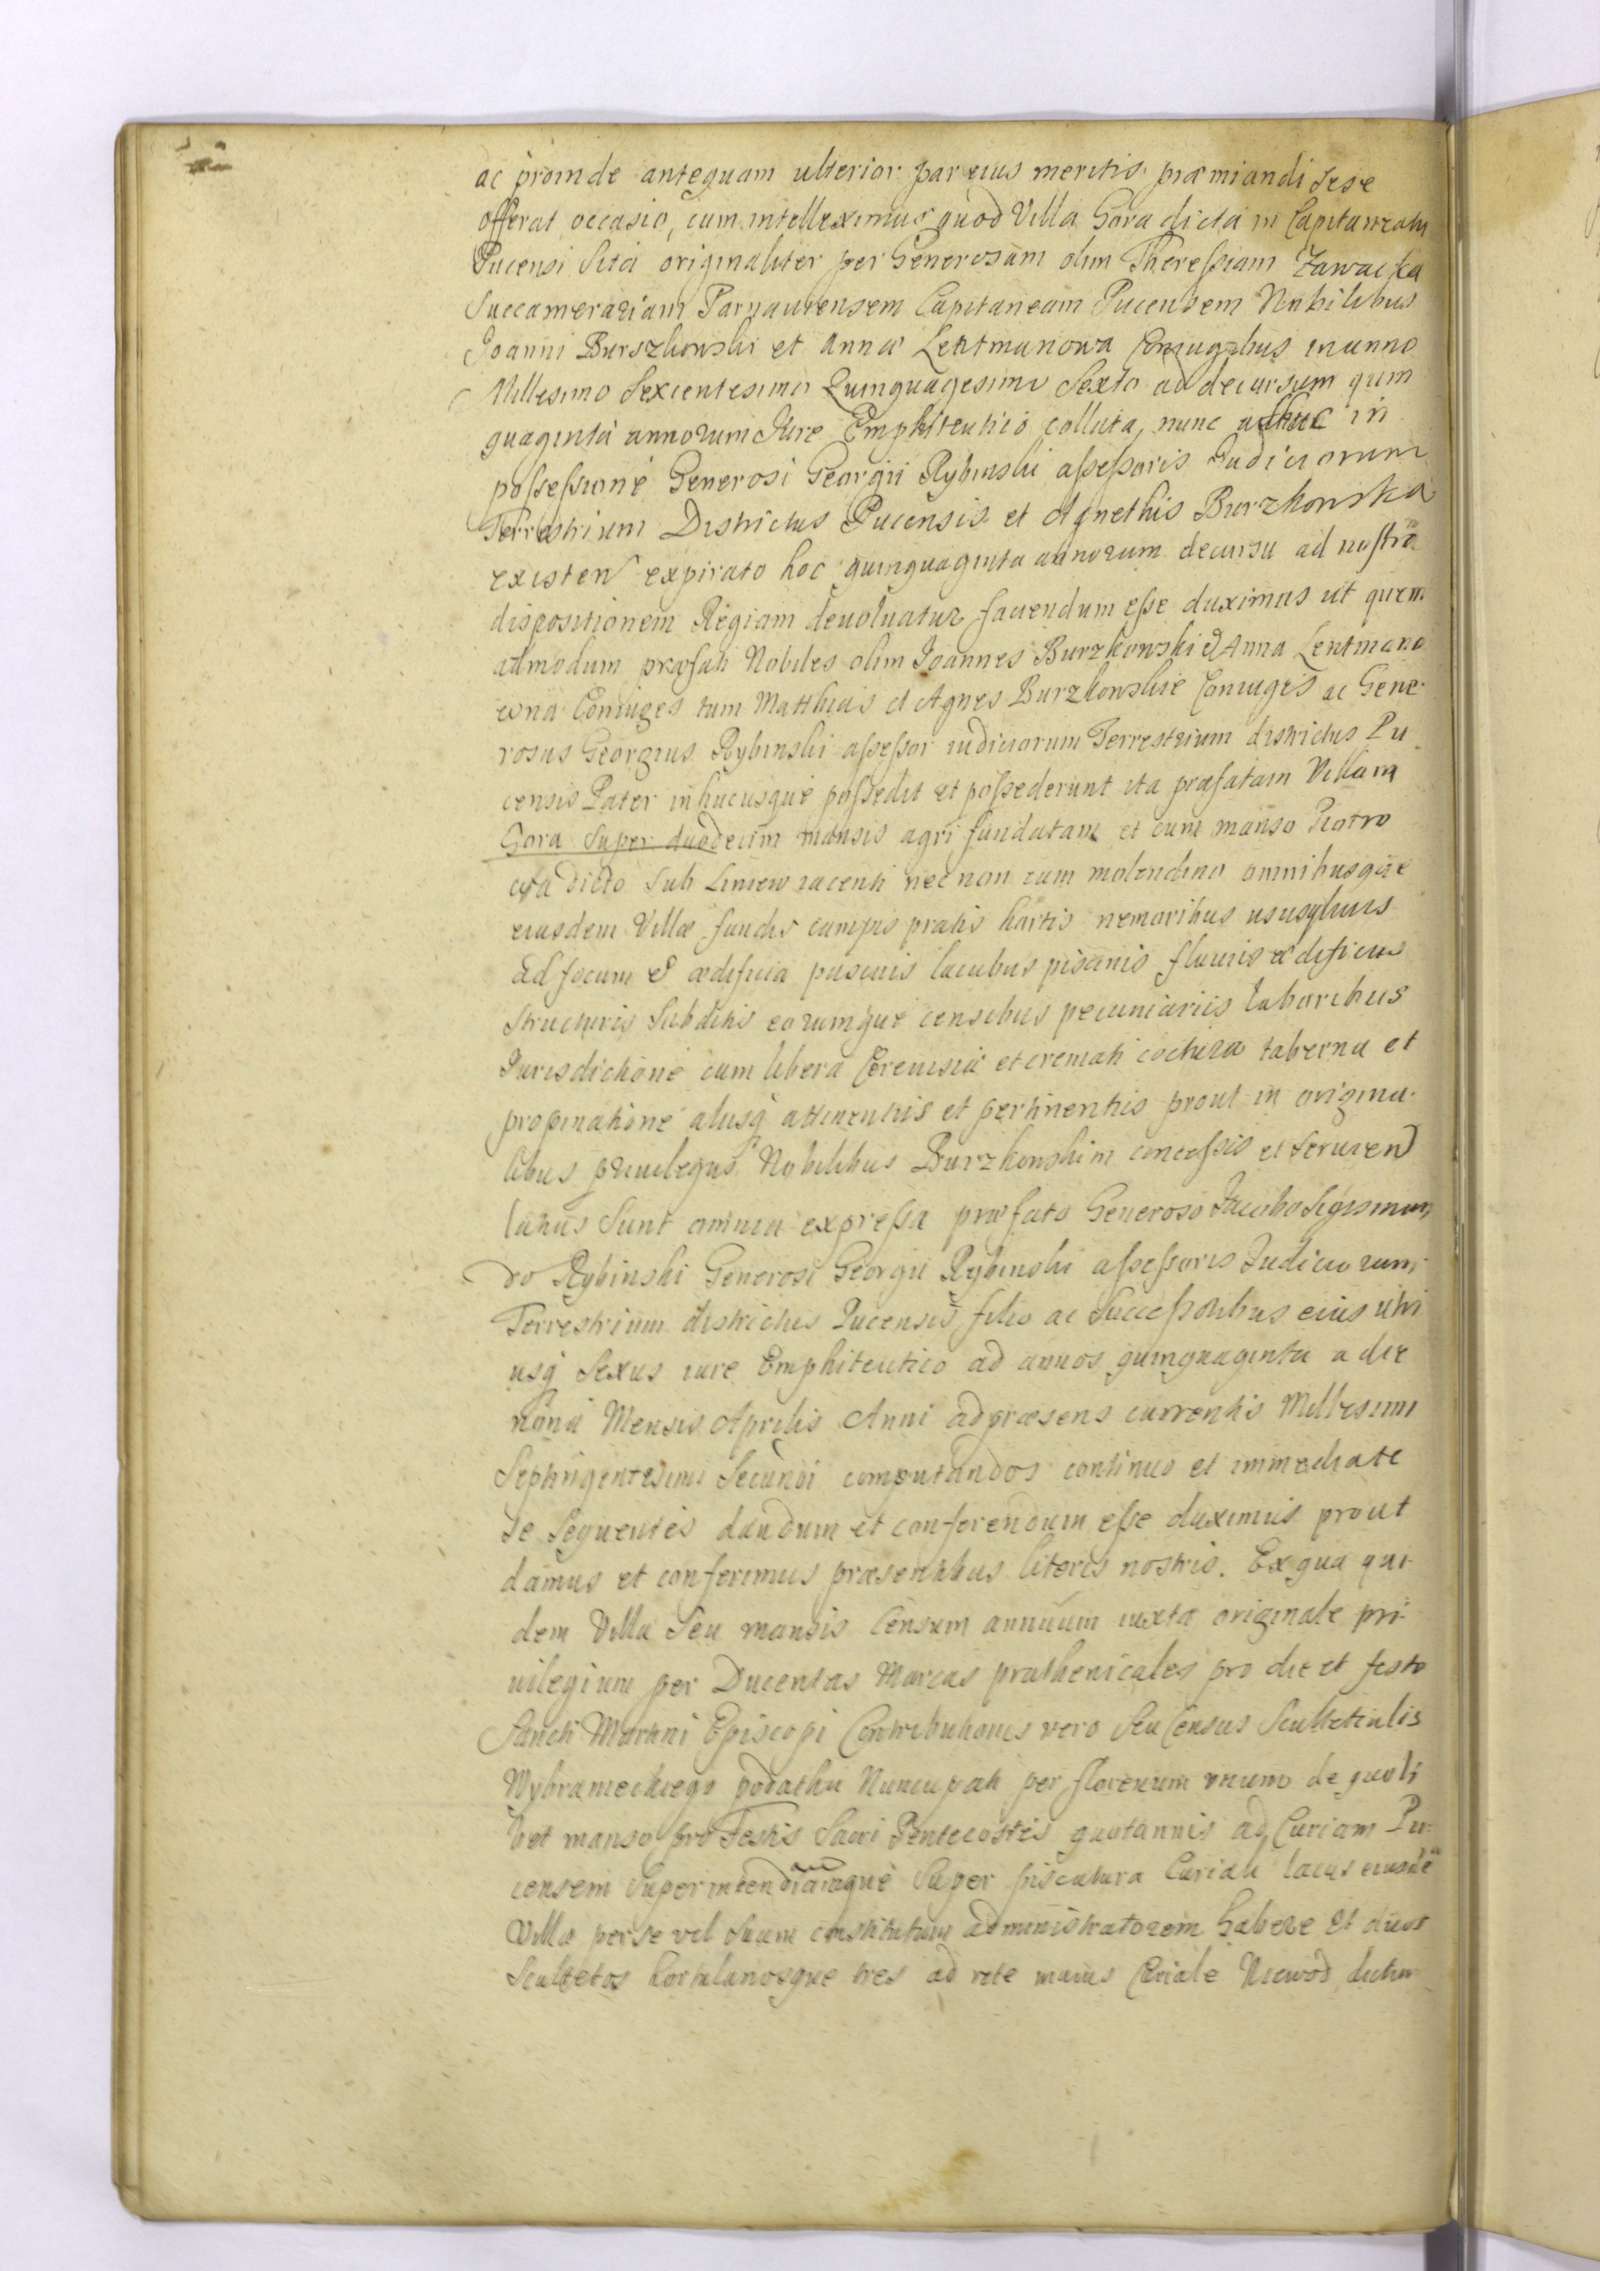 ac proinde antequam ulterior par eius meritis præmiandi sese
offerat occasio, cum intelleximus quod Villa Gora dicta in Capitaneatu
Pucensi Sita originaliter per Generosam olim Theressiam Zawacka
Succamerariam Parnauiensem Capitaneam Pucensem Nobilibus
Joanni Burszkowski et Annæ Lentmanowa Coniugibus in anno
Millesimo Sexcentesimo Quinquagesimo Sexto ad decursum quin
quaginta annorum Jure Emphiteutico collata, nunc adhuc in
possessione Generosi Georgii Rybinski assessoris Judiciorum
Terrestrium Districtus Pucensis et Agnethis Burzkonska
existen expirato hoc quinquaginta annorum decursu ad nostrã
dispositionem Regiam deuoluatur faciendum esse duximus ut quem
admodum præfati Nobiles olim Joannes Burzkowski et Anna Lentmano
wna Coniuges tum Matthias et Agnes Burzkowskie Coniuges ac Gene
rosus Georgius Rybinski assessor iudiciorum Terrestrium districtus Pu
censis Pater in hucusque possedit et possederunt ita præfatam Villam
Gora super duodecim mansis agri fundatam et cum manso Piotro
dicto sub Liniew iacenti nec non cum molendino omnibusque
eiusdem Villæ fundis campis pratis hortis nemoribus ususq
ad focum & ædificia pascuis lacubus piscinis fluuiis ædificiis
structuris Subditis eorumque censibus pecuniariis laboribus
Jurisdictione cum libera Cereuisiæ et cremati coctura taberna et
propinatione aliisq attinentiis et pertinentiis prout in origina
libus priuilegiis Nobilibus Burzkonskim concessis et seruien
sunt omnia expressa præfato Generoso Jacobo Sigismun
do Rybinski Generosi Georgii Rybinski assessoris Judiciorum
Terrestrium districtus Pucensis filio ac Successoribus eius utri
usq Sexus iure Emphiteutico ad annos quinquaginta a die
nona Mensis Aprilis Anni ad præsens currentis Millesimi
Septingentesimi Secundi computandos continuo et immediate
se sequentes dandum et conferendum esse duximus prout
damus et conferimus præsentibus literis nostris. Ex qua qui
dem Villa Seu mansis Censum annuum iuxta originale pri
uilegium per Ducentas Marcas pruthenicales pro die et festo
Sancti Martini Episcopi Contributionis vero Seu Census Scultetialis
Wybranieckiego podatku Nuncupati per florenum unum de quoli
bet manso pro Festis Sacri Pentecostes quotannis ad Curiam Pu
censem Superintendiamque Super piscatura Curiali lacus eiusdē
Villæ per se vel suum constitutum administratorem habere et duos
Scultetos hortulanosque tres ad rete maius Niewod dictum